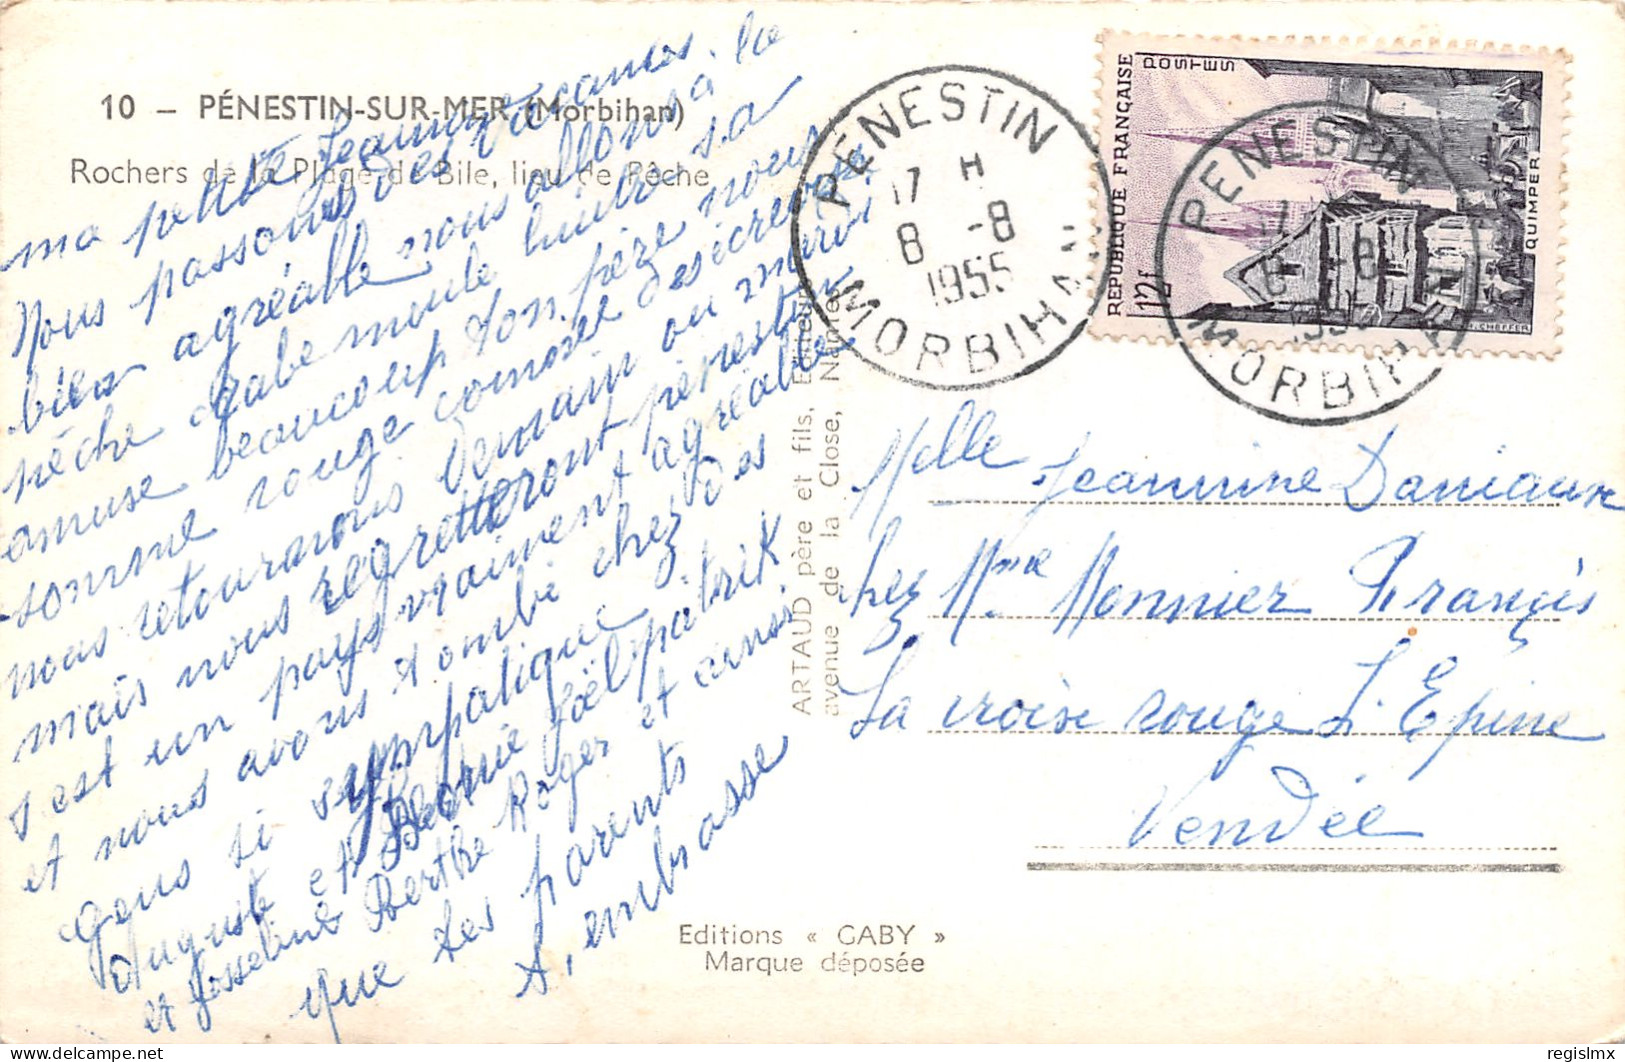 10 — PÉNESTIN-SUR-MER (Morbihan)
Rochers de la Plage de Bile, lieu de Pêche
ma petite Jeannine
Nous passons des vacances
bien agréable nous allons à la
pêche crabe moule huitre sa
amuse beaucoup ton père nous
somme rouge comme des écrevisse
nous retournrons demain ou mardi
mais nous regretteront pénestin
s'est un pays vraiment agréable
et nous avons tombé chez des
gens si sympatique
Auguste et Léonie Joël patrik
et Josseline Berthe Roger et ainsi
que tes parents
t'embrasse
ARTAUD père et fils, Editeurs
avenue de la Close, Nantes
PÉNESTIN
17 H
8 -8
1955
MORBIHAN
REPUBLIQUE FRANÇAISE
POSTES
12f
QUIMPER
PÉNESTIN
MORBIHAN
Melle Jeannine Daniaux
chez Mme Monnier François
La croix rouge L'Epine
Vendée
Editions « GABY »
Marque déposée
delcampe.net
regislmx